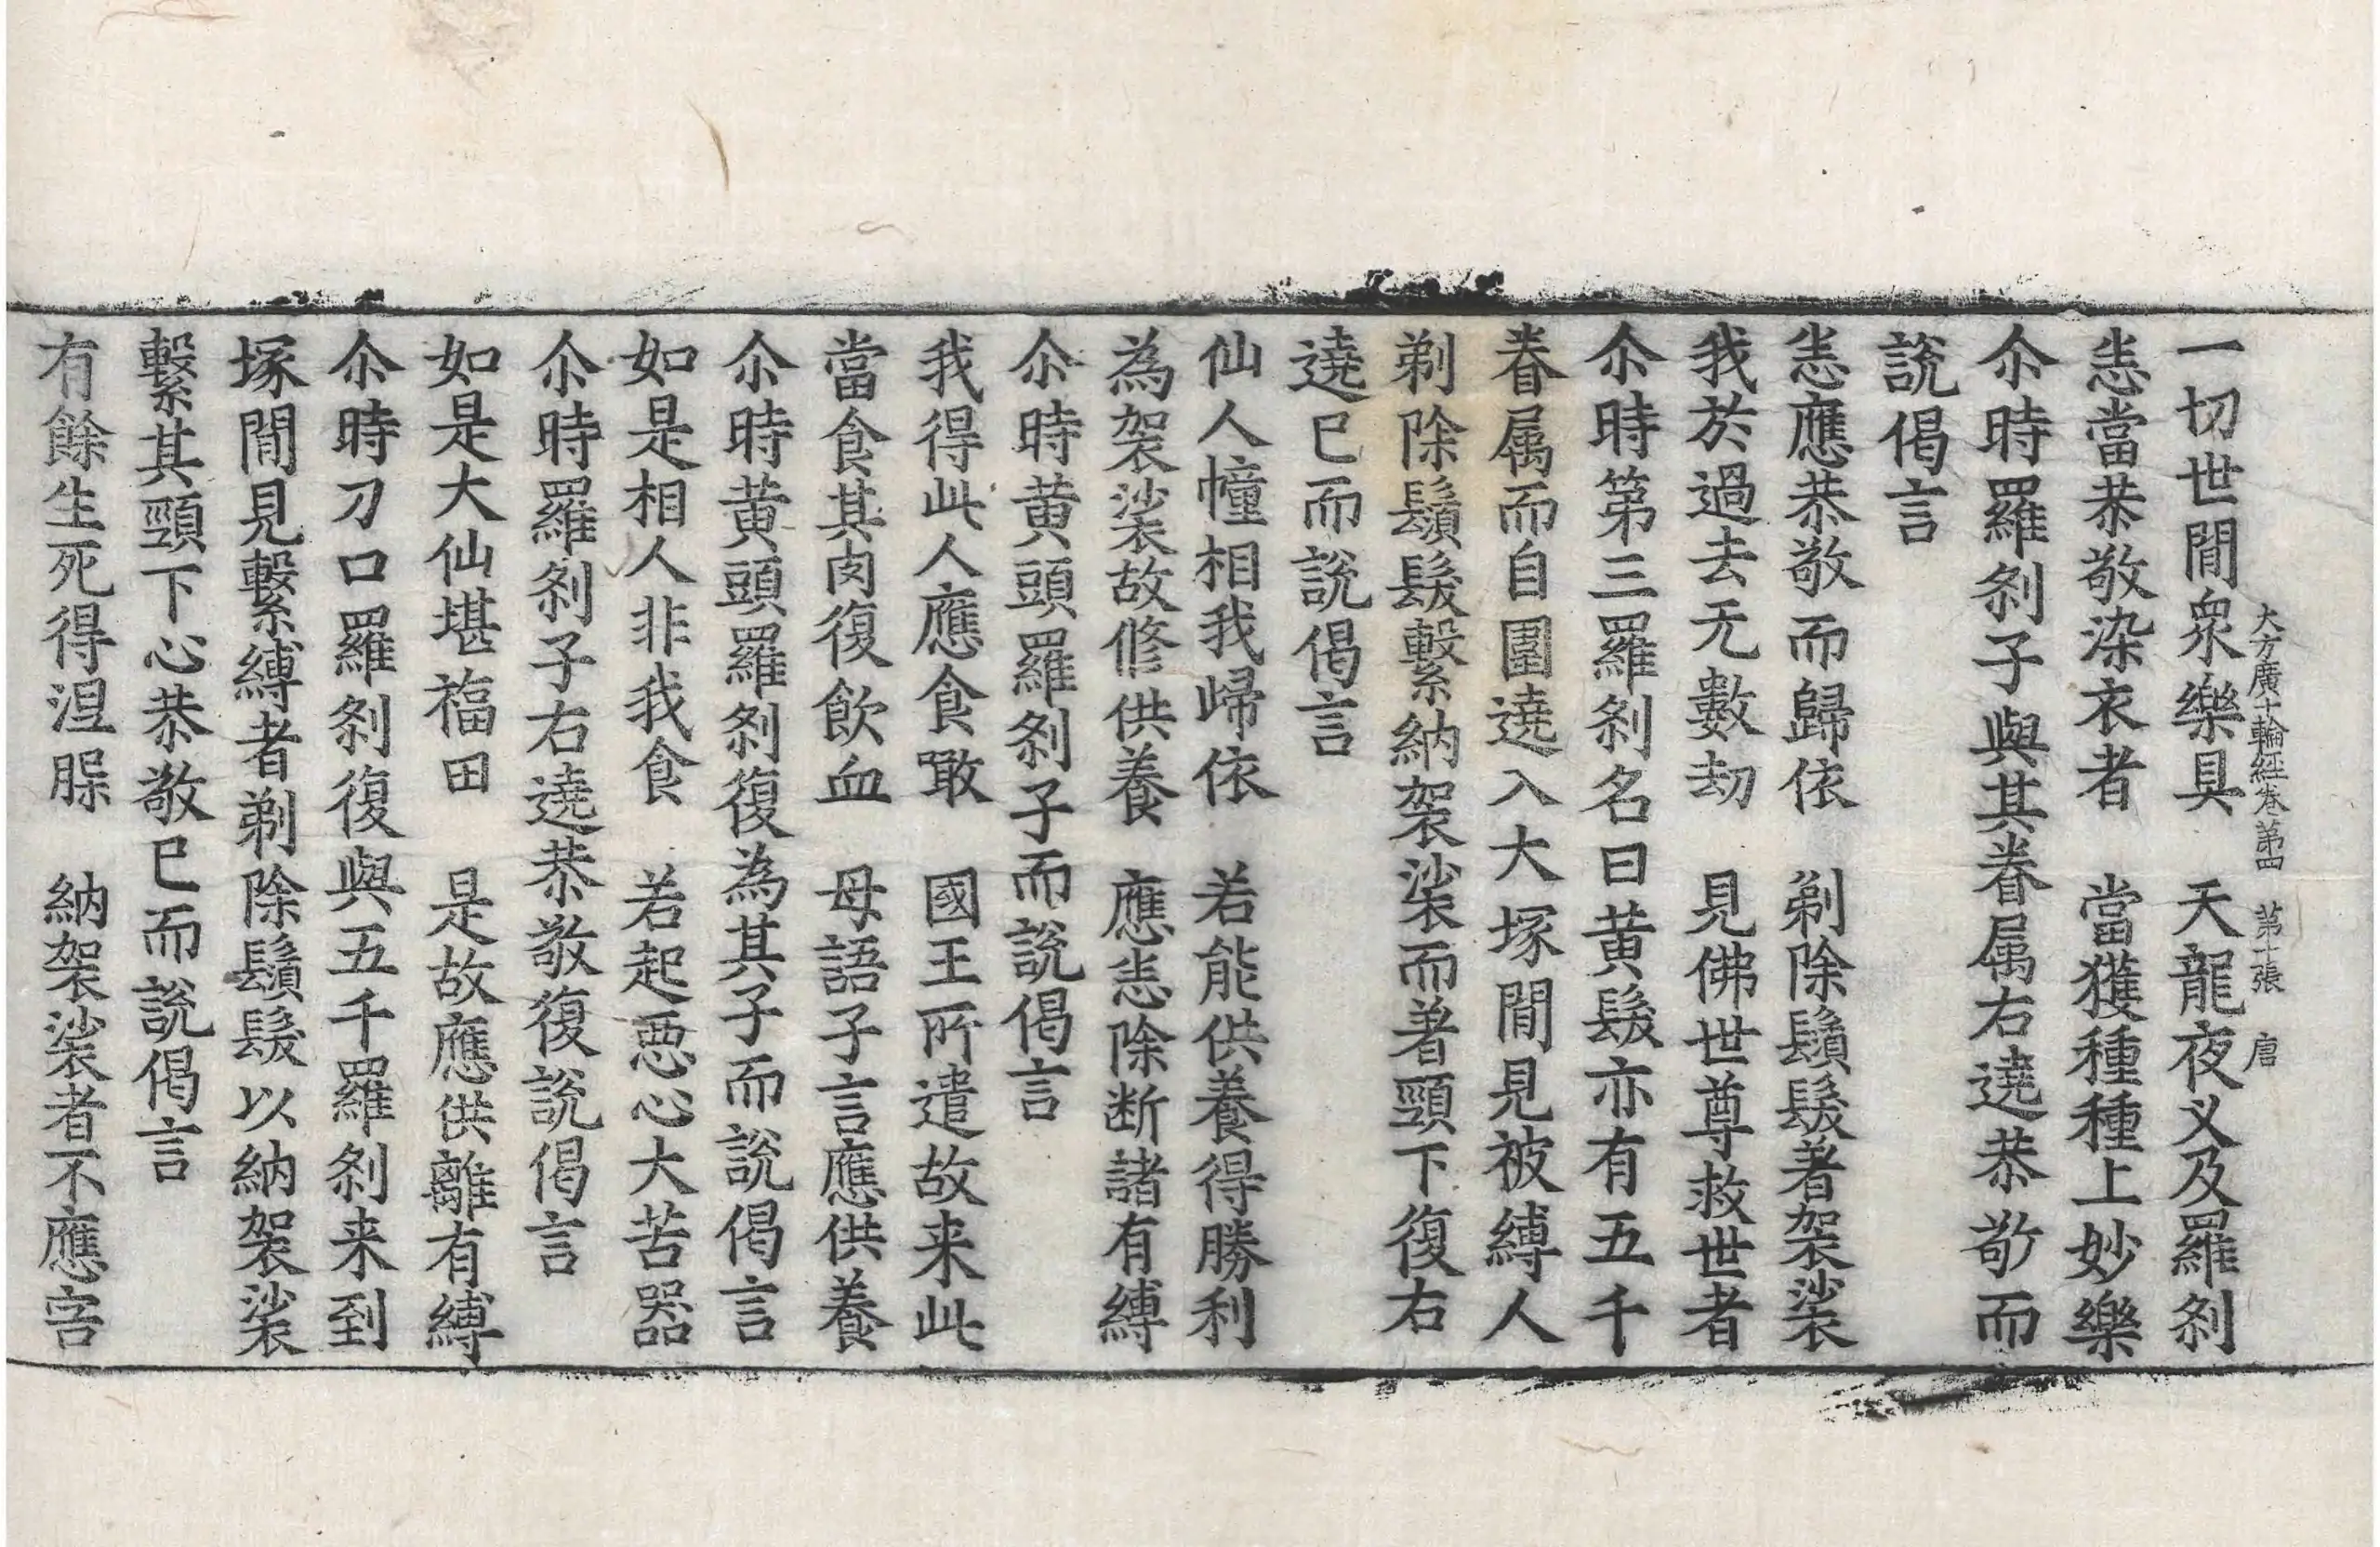 大方廣十輪經卷第四　第十張　唐
一切世間衆樂具　天龍夜义及羅刹
恚當恭敬染衣者　當獲種種上妙樂
尒時羅刹子與其眷属右遶恭敬而
說偈言
恚應恭敬而歸依　剃除鬚髮著袈裟
我於過去无數劫　見佛世尊救世者
尒時第三羅刹名曰黄髮亦有五千
眷属而自圍遶入大塚間見被縛人
剃除鬚髮繫納袈裟而著頸下復右
遶已而說偈言
仙人幢相我㱕依　若能供養得勝利
為袈裟故修供養　應恚除断諸有縛
尒時黄頭羅刹子而說偈言
我得此人應食噉　國王所遣故来此
當食其肉復飲血　母語子言應供養
尒時黄頭羅刹復為其子而說偈言
如是相人非我食　若起惡心大苦器
尒時羅刹子右遶恭敬復說偈言
如是大仙堪福田　是故應供離有縛
尒時刀口羅刹復與五千羅刹来到
塚間見繫縛者剃除鬚髮以納袈裟
繫其頸下心恭敬已而說偈言
有餘生死得涅槃　納袈裟者不應害